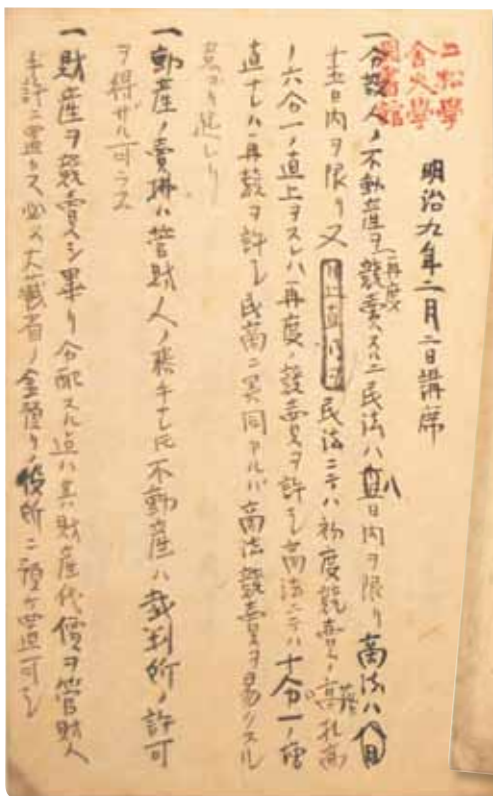 二松學
舍大學
圖書館
明治九年二月二日講席
一分散人ノ不動産ヲ再度競賣スルニ民法ハ八日内ヲ限リ商法ハ
十五日内ヲ限リ又民法ニテハ初度競賣ノ高札高
ノ六分一ノ直上ヲスレハ再度ノ競賣ヲ許シ商法ニテハ十分一ノ増
直ナレハ再競ヲ許シ民商ニ異同アルハ商法競賣ヲ易クスル
ヨリ起レリ
一動産ノ賣拂ハ管財人ノ務ナレ𪜈不動産ハ裁判所ノ許可
ヲ得ザル可ラス
一財産ヲ競賣シ畢リ分配スル迠ハ其財産代價ヲ管財人
手許ニ置カス必ス大蔵省ノ金預リノ役所ニ預ケ置可シ